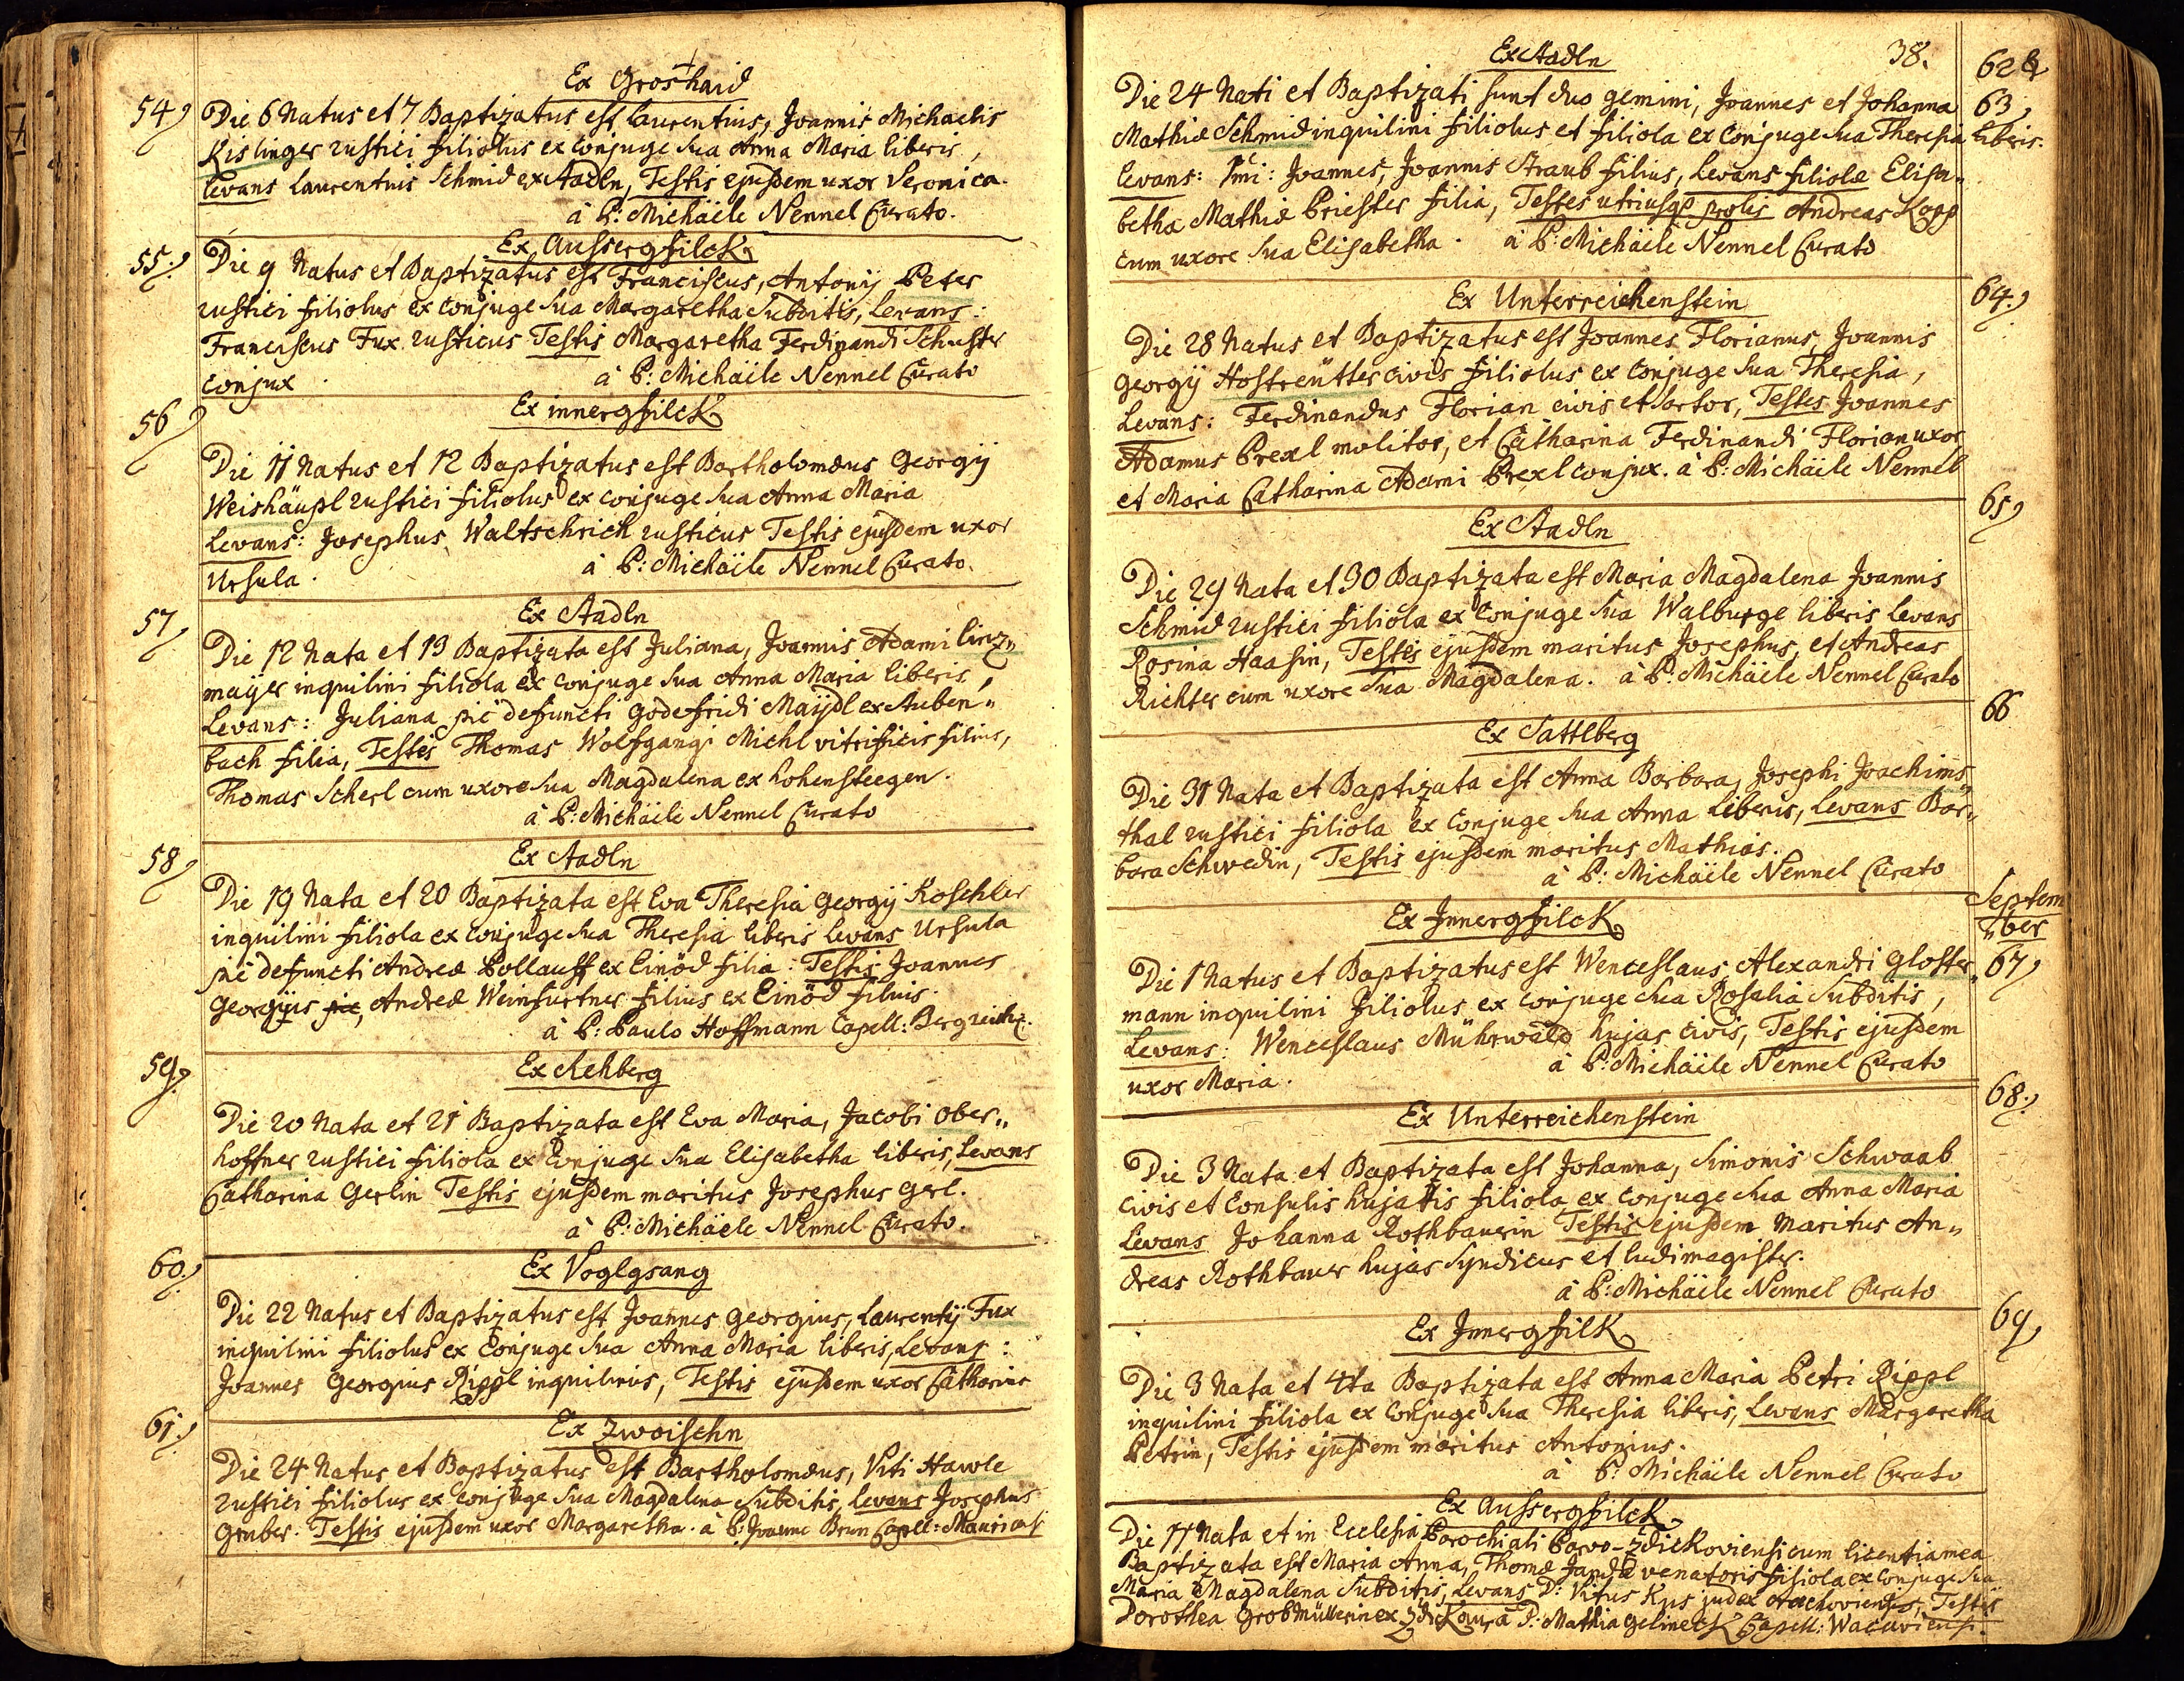 Ex Groshaid
54 Die 6 Natus et 7 Baptizatus est Laurentius, Joannis Michaelis
Kislinger rustici filiolus ex Conjuge sua Anna Maria liberis,
Levans Laurentius Schmid ex Stadln, Testis ejusdem uxor Veronica.
à P: Michäele Nennel Curato.
Ex Aussergfilck
55. Die 9 Natus et Baptizatus est Franciscus, Antonij Peter
rustici filiolus ex Conjuge sua Margaretha Subditis, Levans:
Franciscus Fux rusticus Testis Margaretha Ferdinandi Schuster
Conjux. à P: Michäele Nennel Curato
Ex innergfilck
56 Die 11 Natus et 12 Baptizatus est Bartholomæus Georgij
Weishäupl rustici filiolus ex conjuge sua Anna Maria
Levans: Josephus Waltschrich rusticus Testis ejusdem uxor
Ursula. à P: Michäele Nennel Curato.
Ex Stadln
57 Die 12 Nata et 13 Baptizata est Juliana, Joannis Adami Linz„
maÿer inquilini filiola ex conjuge sua Anna Maria liberis,
Levans: Juliana pie defuncti Godefridi Maÿdl ex Auben„
bach filia, Testes Thomas Wolfgangi Michl vitrificis filius,
Thomas Scherl cum uxore sua Magdalena ex hohensteegen.
à P: Michäele Nennel Curato
Ex Stadln
58 Die 19 Nata et 20 Baptizata est Eva Theresia Georgij Roschler
inquilini filiola ex conjuge sua Theresia liberis Levans Ursula
pie defuncti Andreæ Pollauff ex Einöd filia: Testis Joannes
Georgius pie, Andreæ Weinfurtner filius ex Einöd filius.
à P: Paulo Hoffmann Capell: Bergreich.
Ex Rehberg
59. Die 20 Nata et 21 Baptizata est Eva Maria, Jacobi Ober„
hoffner rustici filiola ex Conjuge sua Elisabetha liberis, Levans
Catharina Gerlin Testis ejusdem maritus Josephus Gerl.
à P: Michäele Nennel Curato.
Ex Voglgsang
60. Die 22 Natus et Baptizatus est Joannes Georgius, Laurentij Fux
inquilini filiolus ex Conjuge sua Anna Maria liberis, Levans:
Joannes Georgius Rippl inquilinus, Testis ejusdem uxor Catharina
Ex Zwoischn
61. Die 24 Natus et Baptizatus est Bartholomæus, Viti Hawle
rustici filiolus ex conjuge sua Magdalena Subditis, Levans Josephus
Gruber. Testis ejusdem uxor Margaretha. à P: Joanne Brun Capell:
38.
Ex Stadln
62 &
63 Die 24 Nati et Baptizati sunt duo gemini, Joannes et Johanna
Mathiæ Schmid inquilini filiolus et filiola ex Conjuge sua Theresia liberis.
Levans: 1mi: Joannes, Joannis Straub filius, Levans filiolæ Elisa„
betha Mathiæ Priester filia, Testes utriusq prolis Andreas Kopp
cum uxore sua Elisabetha. à P: Michäele Nennel Curato
Ex Unterreichenstein
64. Die 28 Natus et Baptizatus est Joannes Florianus, Joannis
Georgij Hostreütter civis filiolus ex Conjuge sua Theresia,
Levans: Ferdinandus Florian civis et sartor, Testes Joannes
Adamus Prexl molitor, et Catharina Ferdinandi Florian uxor
et Maria Catharina Adami Prexl conjux. à P: Michäele Nennel
Ex Stadln
65 Die 29 Nata et 30 Baptizata est Maria Magdalena Joannis
Schmid rustici filiola ex Conjuge sua Walburge liberis Levans
Rosina Haasin, Testes ejusdem maritus Josephus, et Andreas
Richter cum uxore sua Magdalena. à P: Michäele Nennel Curato
Ex Sattlberg
66 Die 31 Nata et Baptizata est Anna Barbara, Josephi Joachims„
thal rustici filiola ex Conjuge sua Anna liberis, Levans Bar„
bara Schwedin, Testis ejusdem maritus Mathias.
à P: Michäele Nennel Curato
Septem
„ber
Ex Innergfilck
67 Die 1 Natus et Baptizatus est Wenceslaus Alexandri Gloster„
mann inquilini filiolus ex conjuge sua Rosalia Subditis,
Levans: Wenceslaus Mührwald hujas civis, Testis ejusdem
uxor Maria. à P: Michäele Nennel Curato
Ex Unterreichenstein
68. Die 3 Nata et Baptizata est Johanna, Simonis Schwaab
civis et Consulis hujatis filiola ex conjuge sua Anna Maria
Levans Johanna Rothbauerin Testis ejusdem maritus An„
dreas Rothbauer hujas Syndicus et ludimagister.
à P: Michäele Nennel Curato
Ex Innergfilk
69 Die 3 Nata et 4ta Baptizata est Anna Maria Petri Rippl
inquilini filiola ex Conjuge sua Theresia liberis, Levans Margaretha
Petrin, Testis ejusdem maritus Antonius.
à P: Michäele Nennel Curato
Ex Aussergfilck
Die 11 Nata et in Ecclesia Parochiali Parvo-Zdickoviensi cum licentia mea
Baptizata est Maria Anna, Thomæ Janda venatoris filiola ex Conjuge sua
Maria Magdalena Subditis, Levans D: Vitus judex Testis
Dorothea Grobmüllerin ex P: Mathia Gelineck Capell: